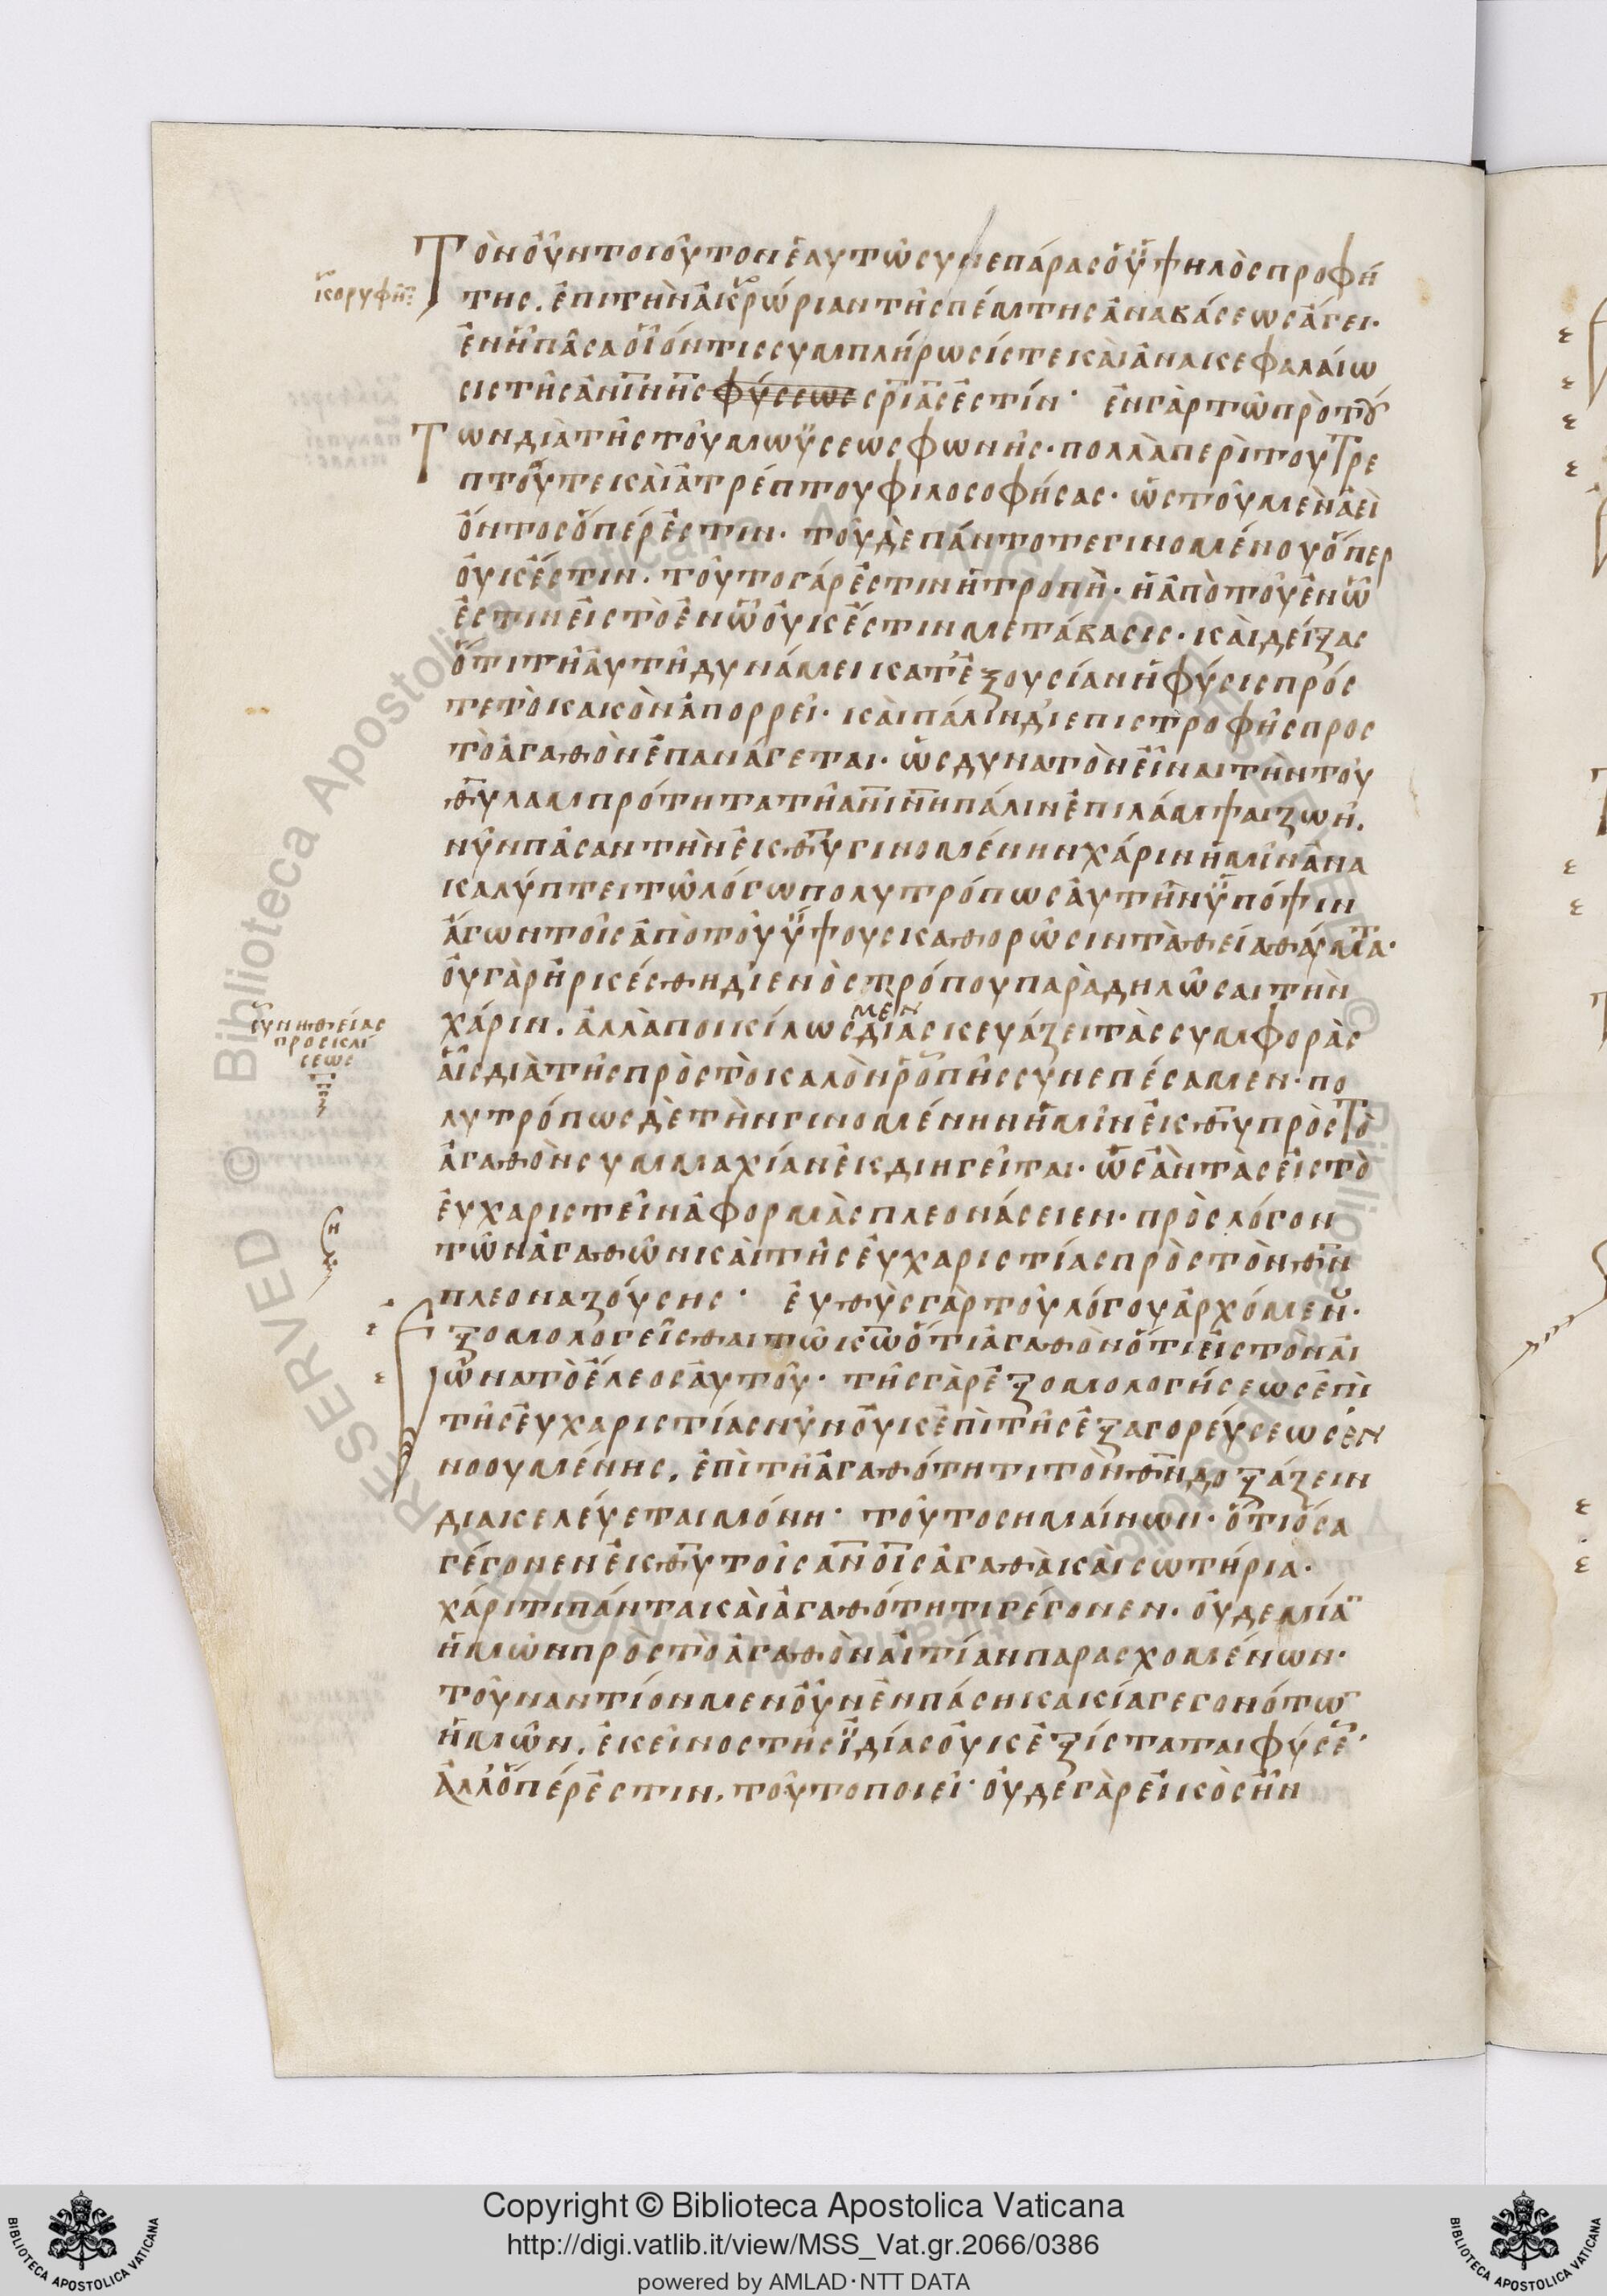 Τὸν οὖν τοιοῦτον ἑαυτῶ συνεπάρας ὁ ὑψηλὸς προφή
κορυφὴν
της. ἐπὶ τὴν ἀκρώριαν τῆς πέμπτης ἀναβάσεως ἄγει.
ἐν ἧ πᾶσα οἷόν τις συμπλήρωσίς τε καὶ ἀνακεφαλαίω
σις τῆς ἀνίνης φύσεως σρίας ἐστίν· ἐν γὰρ τῶ πρὸ τού
Των διὰ τῆς τοῦ μωϋσέως φωνῆς· πολλὰ περὶ τοῦ τρε
πτοῦ τε καὶ ἀτρέπτου φιλοσοφήσας· ὡς τοῦ μὲν ἀεὶ
ὄντος ὅπέρ ἐστιν· τοῦ δὲ πάντοτε γινομένου ὅπερ
οὐκ ἔστιν. τοῦτο γάρ ἐστιν ἡ τροπὴ. ἡ ἀπὸ τοῦ ἐν ὧ
ἐστιν εἰς τὸ ἐν ὧ οὐκ ἔστιν μετάβασις. καὶ δείξας
ὅτι τῆ αὐτῆ δυνάμει κατ' ἐξουσίαν ἡ φύσις πρός
τε τὸ κακὸν ἀπορρεῖ. καὶ πάλιν δι' ἐπιστροφῆς προς
τὸ ἀγαθὸν ἐπανάγεται. ὡς δυνατὸν εἶναι τὴν τοῦ
θυ λαμπρότητα τῆ ανινη πάλιν ἐπιλάμψαι ζωῆ.
νῦν πᾶσαν τὴν ἐκ θυ γινομένην χάριν ἡμῖν ἀνα
καλύπτει τῶ λόγω πολυτρόπως αὐτὴν ὑπόψιν
ἄγων τοῖς ἀπὸ τοῦ ὕψους καθορῶσιν τὰ θεῖα θαύματα.
οὐ γὰρ ἠρκέσθη δι' ἑνὸς τρόπου παραδηλῶσαι τὴν
συνηθείας
προσκλί
σεως
μὲν
χάριν. ἀλλὰ ποικίλως διασκευάζει τὰς συμφορὰς
αἷς διὰ τῆς πρὸς τὸ καλὸν ῥοπῆς συνεπέσαμεν. πο
λυτρόπως δὲ τὴν γινομένην ἡμῖν ἐκ θυ πρὸς τὸ
ἀγαθὸν συμμαχίαν ἐκδιηγεῖται. ὡς ἂν τὰς εἰς τὸ
εὐχαριστεῖν ἀφορμὰς πλεονάσειεν. πρὸς λόγον
τῶν ἀγαθῶν καὶ τῆς εὐχαριστίας πρὸς τὸν θν
πλεοναζούσης· εὐθὺς γὰρ τοῦ λόγου ἀρχόμενου.
Ἐξομολογεῖσθαι τῶ κω ὅτι ἀγαθὸν ὅτι εἰς τὸν αἰ
ῶνα τὸ ἔλεος αὐτοῦ. τῆς γὰρ ἐξομολογήσεως ἐπὶ
τῆς εὐχαριστίας νῦν οὐκ ἐπὶ τῆς ἐξαγορεύσεως ἐν
νοουμένης. ἐπὶ τῆ ἀγαθότητι τὸν θν δοξάζειν
διακελεύεται μόνη. τοῦτο σημαίνων. ὅτι ὅσα
γέγονεν ἐκ θυ τοῖς ανοις ἀγαθὰ καὶ σωτήρια.
χάριτι πάντα καὶ ἀγαθότητι γέγονεν. οὐδεμίαν
ἡμῶν πρὸς τὸ ἀγαθὸν αἰτίαν παρασχομένων.
τοὐναντίον μεν οὖν ἐν πάση κακία γεγονότων
ἡμῶν. ἐκεῖνος τῆς ἰδίας οὐκ ἐξίσταται φύσεως·
ἀλλ' ὅπέρ ἐστιν. τοῦτο ποιεῖ· οὐδε γὰρ εἰκὸς ἦν
Copyright © Biblioteca Apostolica Vaticana
http://digi.vatlib.it/view/MSS_Vat.gr.2066/0386
powered by AMLAD·NTT DATA